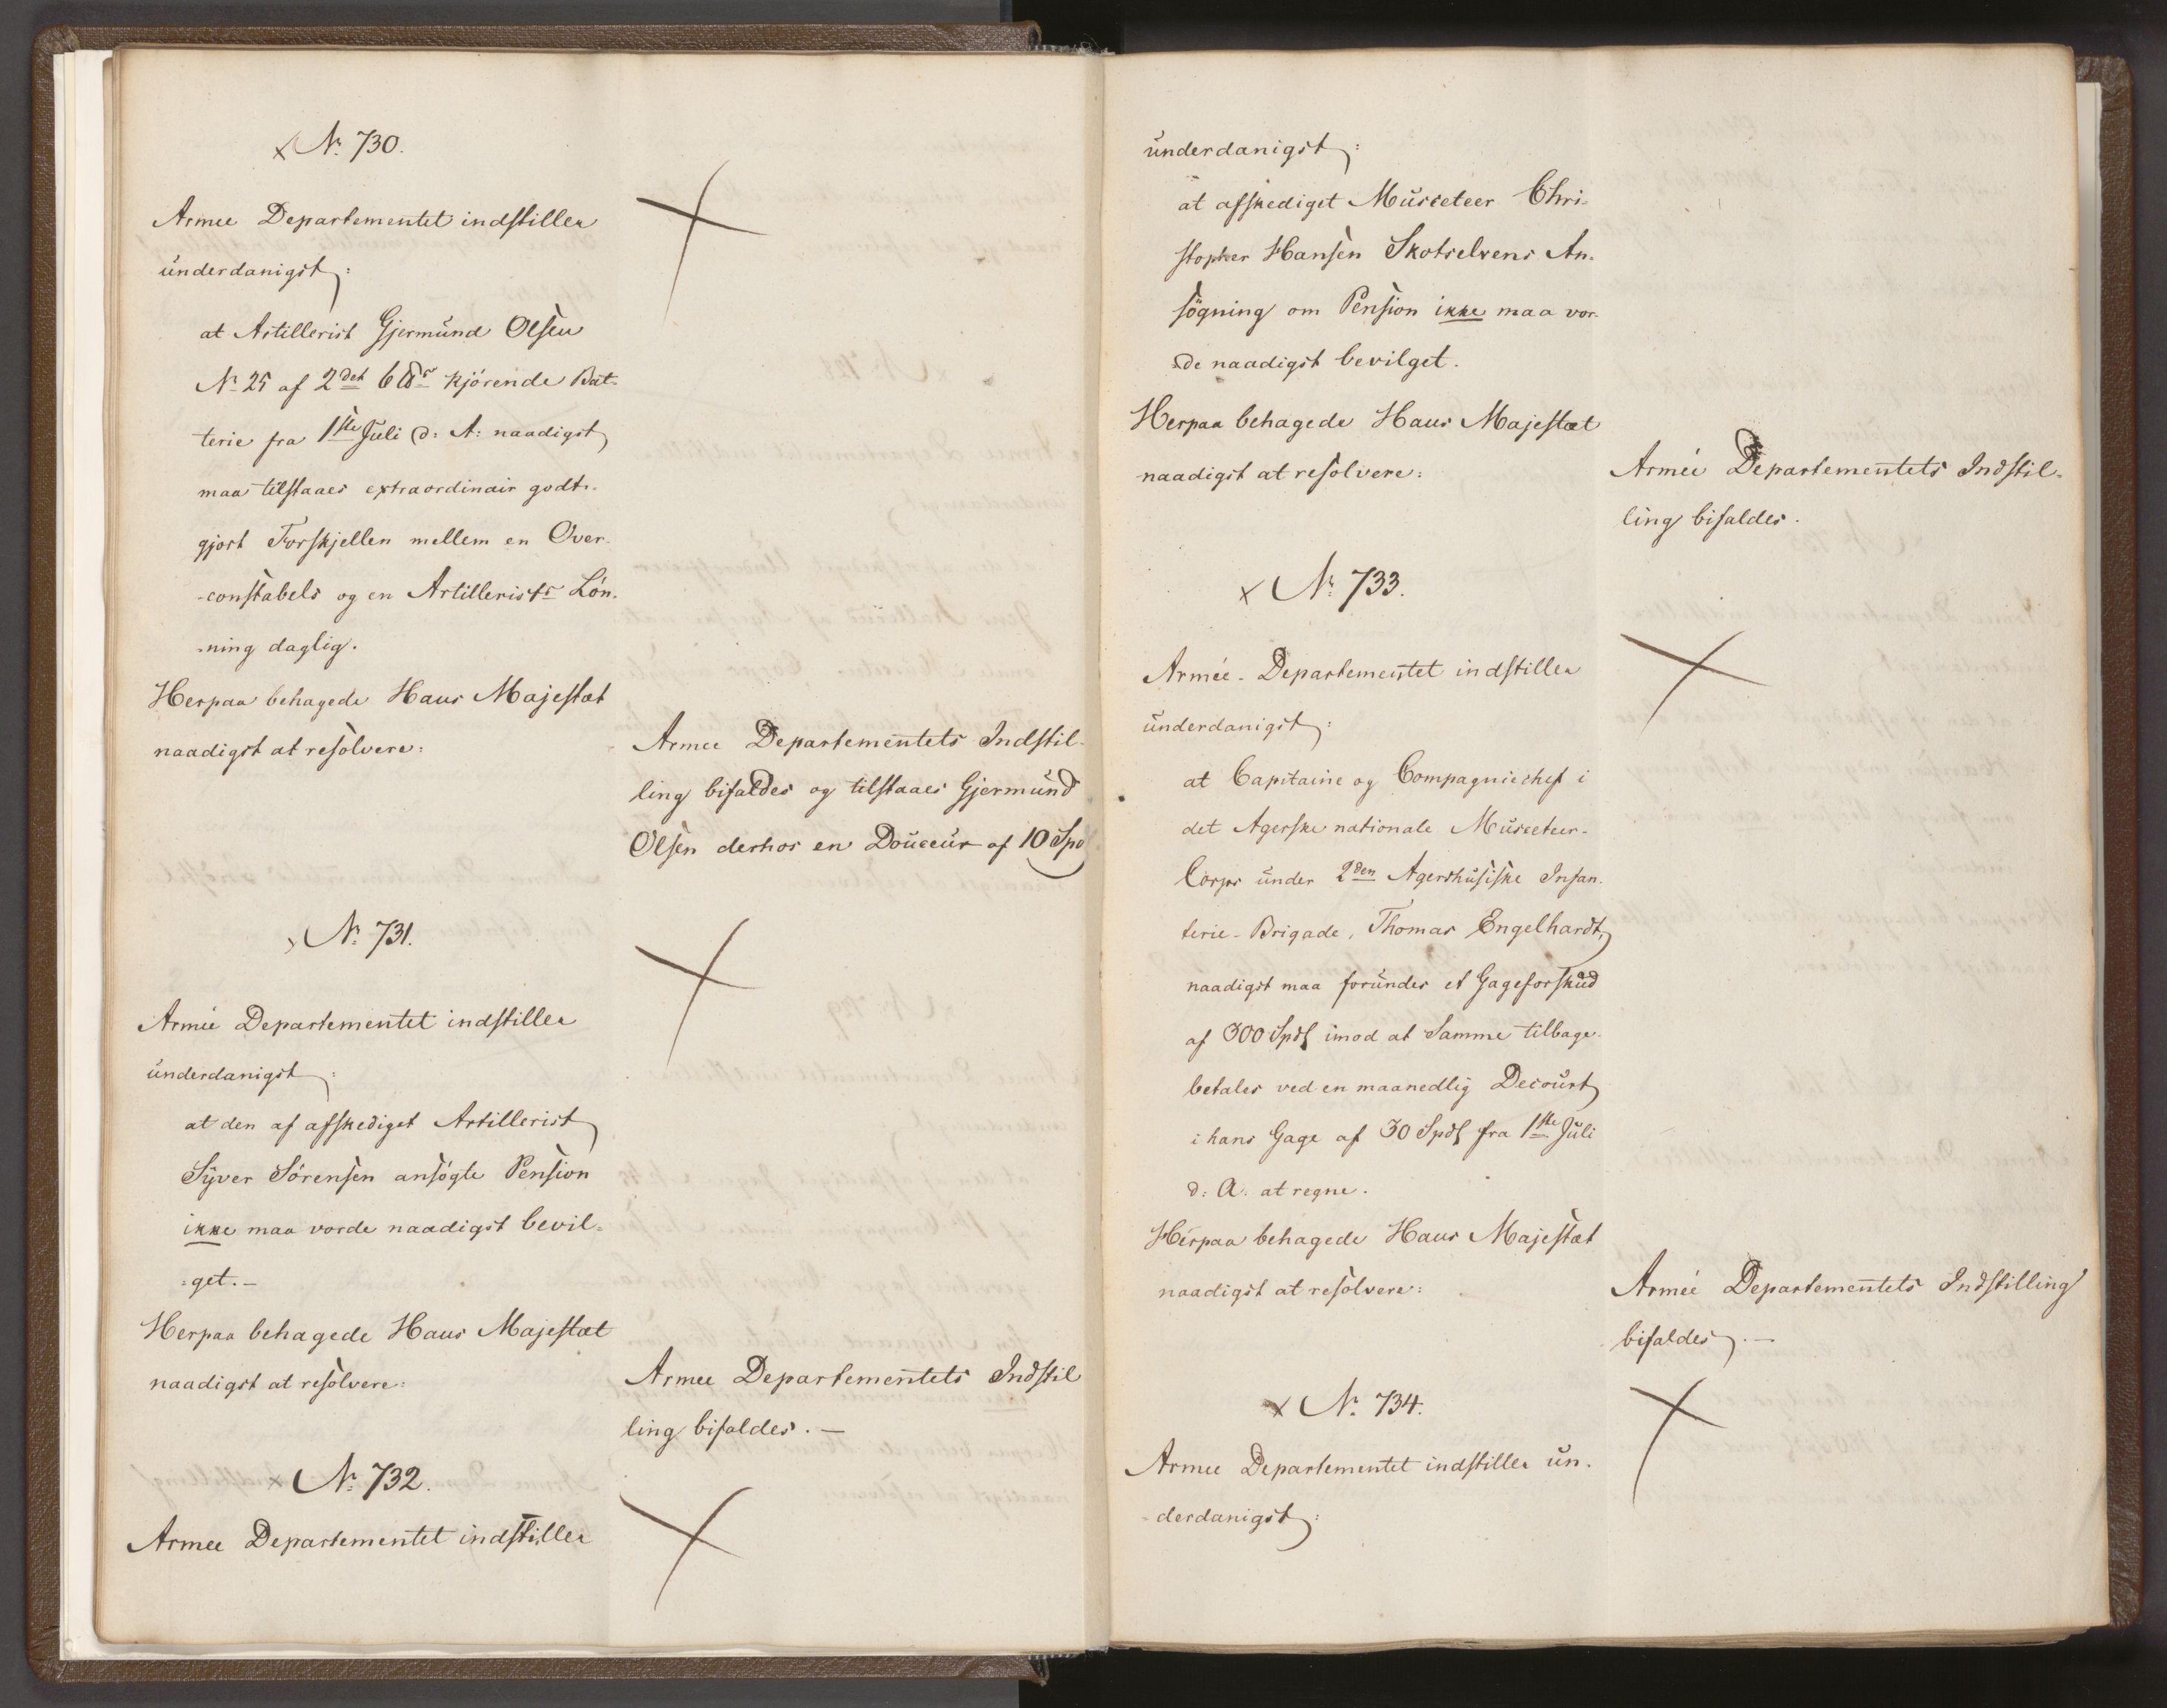 × No 730.
Armee Departementet indstiller
underdanigst:
at Artillerist Gjermund Olsen
No 25 af 2det 6 ℔s kjörende Bat-
terie fra 1ste Juli d: A: naadigst
maa tilstaaes extraordinair godt-
gjort Forskjellen mellem en Over-
-constabels og en Artillerists Lön-
-ning daglig.
Herpaa behagede Hans Majestæt
naadigst at resolvere:
Armee Departementets Indstil-
ling bifaldes og tilstaaes Gjermund
Olsen derhos en Douceur af 10 Spd
× No 731.
Armée Departementet indstiller
underdanigst:
at den af afskediget Artillerist
Syver Sörensen ansögte Pension
ikke maa vorde naadigst bevil-
=get.-
Herpaa behagede Hans Majestæt
naadigst at resolvere:
Armee Departementets Indstil
ling bifaldes. -
× No 732.
Armee Departementet indstiller
underdanigst:
at afskediget Musceteer Chri-
stopher Hansen Skotselvens An-
sögning om Pension ikke maa vor-
-de naadigst bevilget.
Herpaa behagede Hans Majestæt
naadigst at resolvere:
Armée Departementets Indstil-
ling bifaldes.
× No 733.
Armée-Departementet indstiller
underdanigst:
at Capitaine og Compagniechef i
det Agerske nationale Musceteer-
Corps under 2den Agershusiske Infan-
terie-Brigade, Thomas Engelhardt,
naadigst maa forundes et Gageforskud
af 300 Spdl imod at Samme tilbage-
betales ved en maanedlig Decourt
i hans Gage af 30 Spdl fra 1ste Juli
d: A. at regne.
Herpaa behagede Hans Majestæt
naadigst at resolvere:
Armée Departementets Indstilling
bifaldes. -
× No 734.
Armee Departementet indstiller un-
-derdanigst: